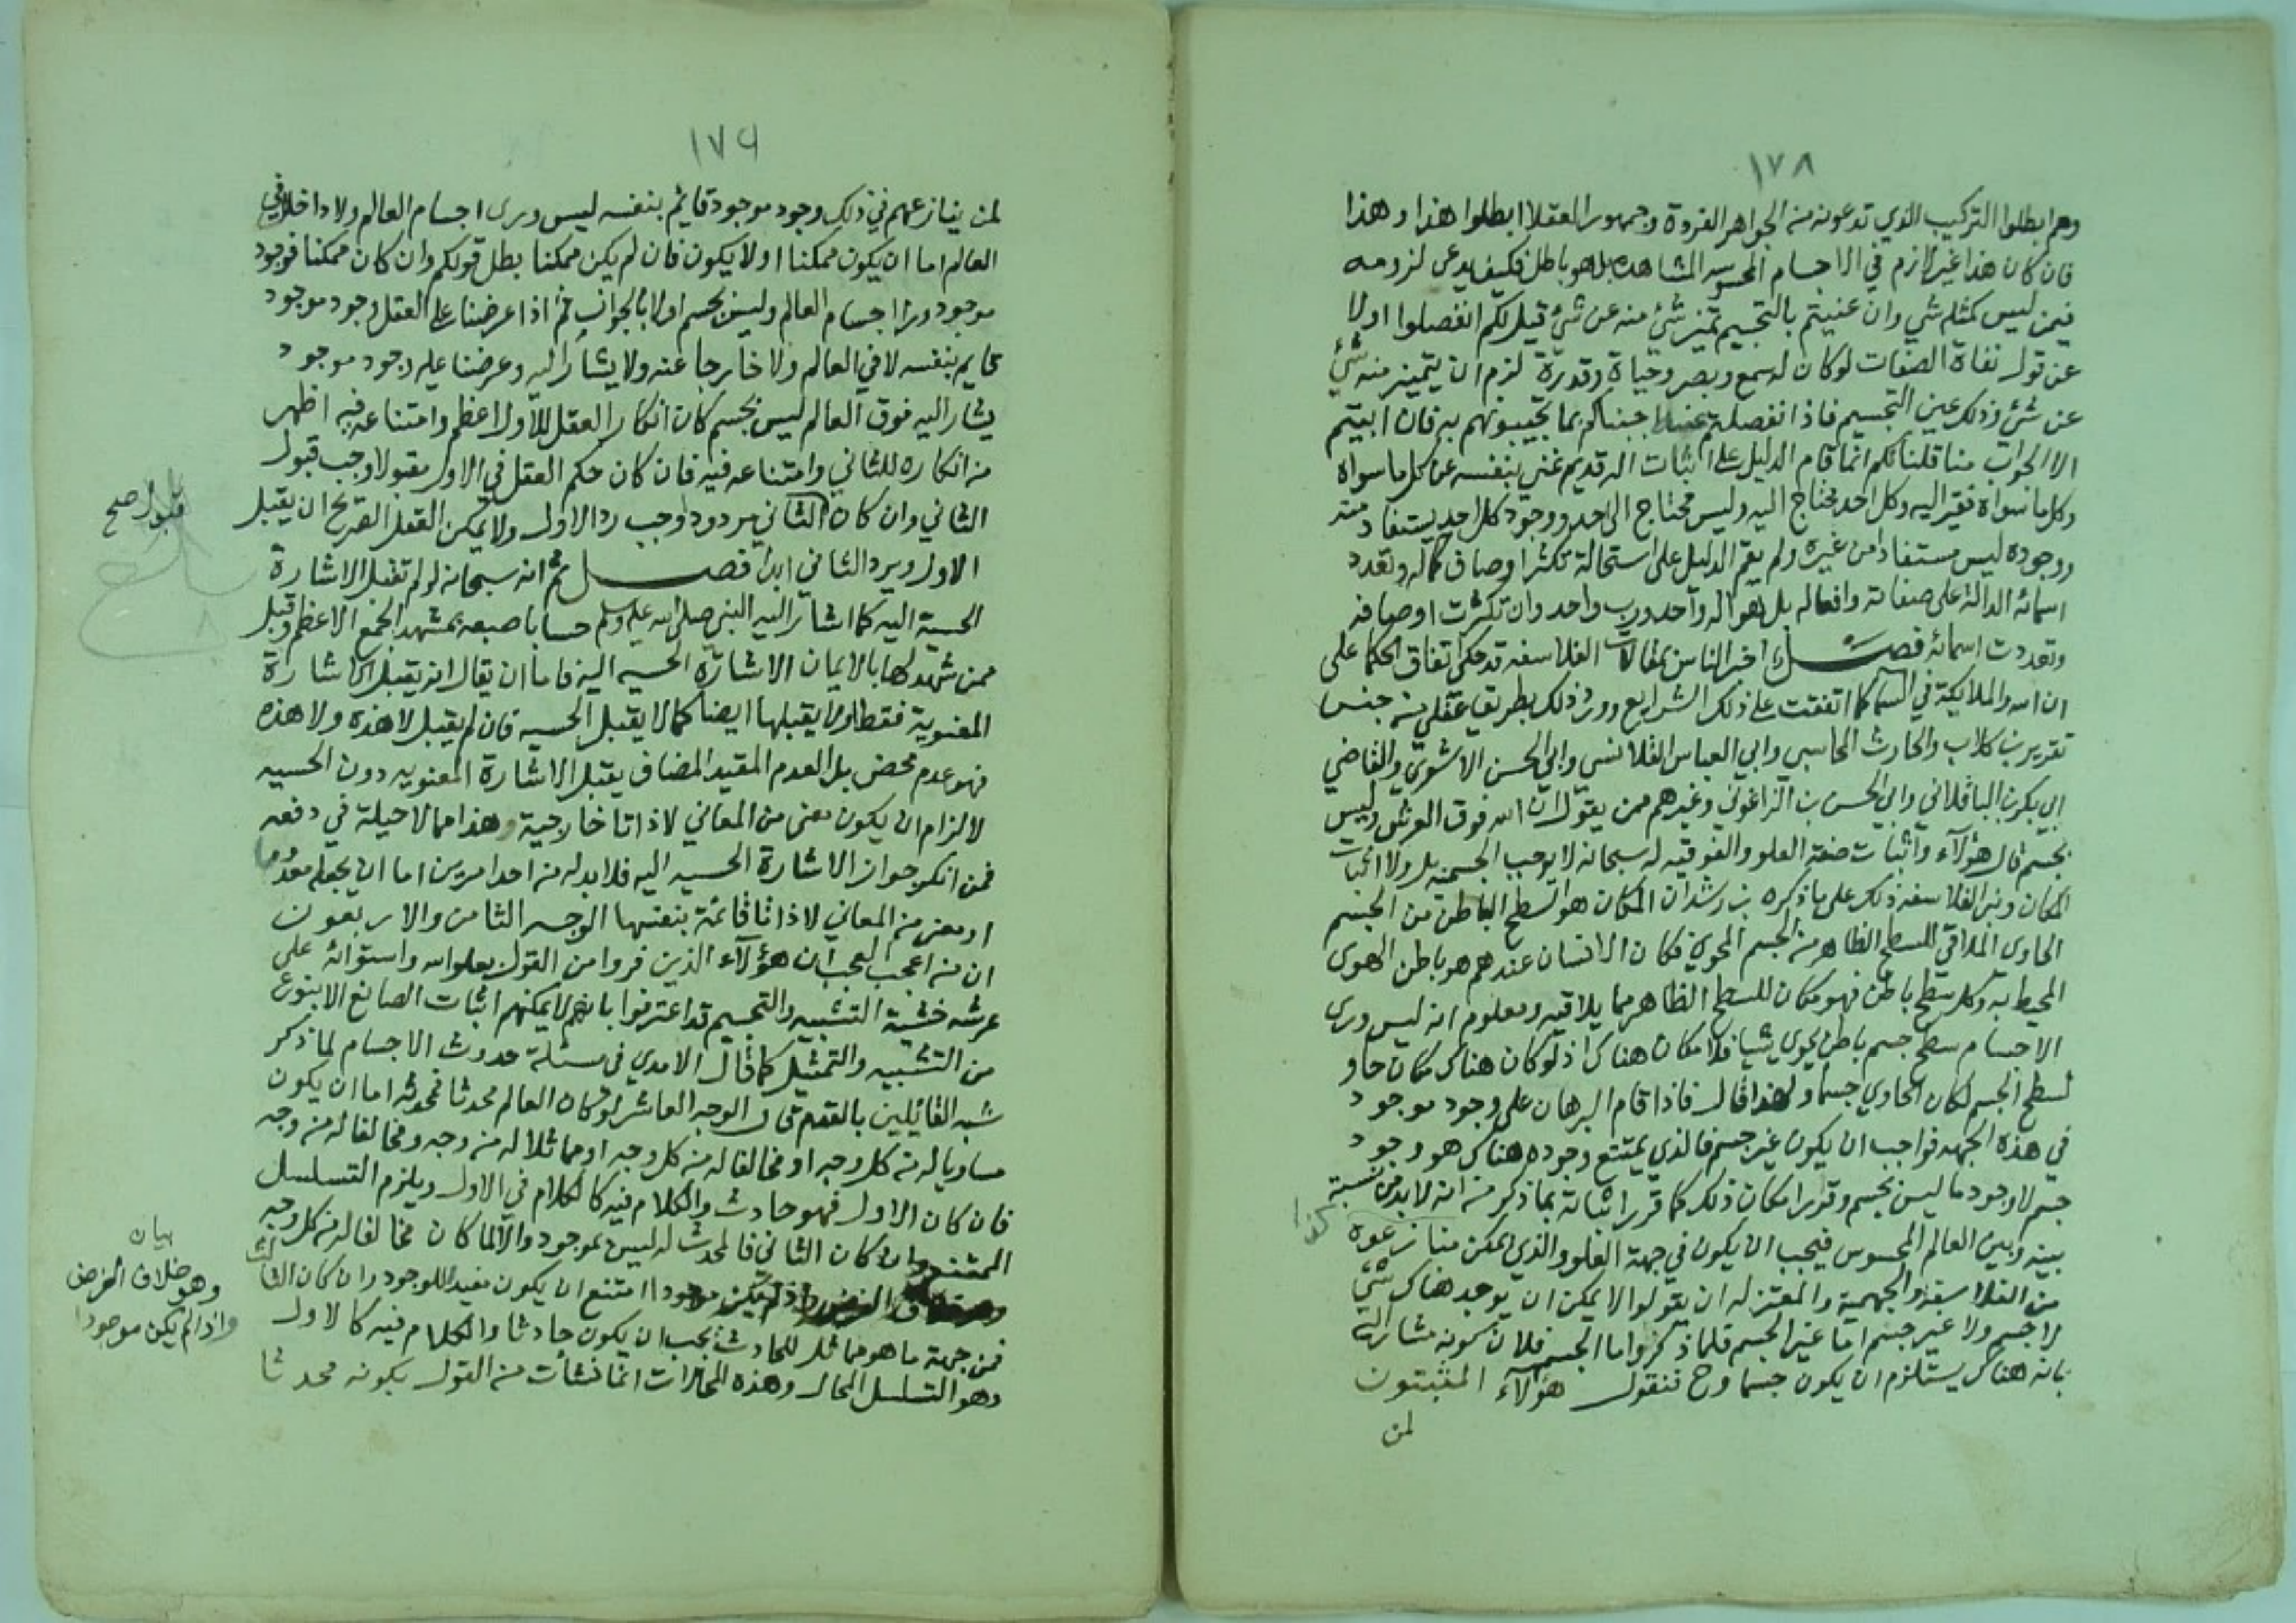 ١٧٨
وهم ابطلوا التركيب الذي تدعونه من الجواهر الفردة وجمهور العقلا ابطلوا هذا وهذا
فان كان هذا غير لازم في الاجسام المحسوسه المشاهده بل هو باطل فكيف يدعى لزومه
فيمن ليس كمثله شي وان عنيتم بالتجسيم تميز شئ منه عن شئ قيل لكم انفصلوا اولا
عن قول نفاة الصفات لو كان له سمع وبصر وحياة وقدرة لزم ان يتميز منه شئ
عن شئ وذلك عين التجسيم فاذا انفصلتم عنه اجبناكم بما تجيبونهم به فان ابيتم
الا الجواب منا قلنا لكم انما قام الدليل على اثبات اله قديم غني بنفسه عن كل ما سواه
وكل ما سواه فقير اليه وكل احد محتاج اليه وليس محتاج الى احد ووجود كل احد يستفاد منه
ووجوده ليس مستفادا من غيره ولم يقم الدليل على استحالة تكثر اوصاف كماله وتعدد
اسمائه الدالة على صفاته وافعاله بل هو اله واحد ورب واحد وان تكثرت اوصافه
وتعددت اسمائه فصل اخبر الناس بمقالات الفلاسفه قد حكى اتفاق الحكما على
ان الله والملايكة في السما كما اتفقت على ذلك الشرايع وقرر ذلك بطريق عقلي من جنس
تقرير بن كلاب والحارث المحاسبي وابي العباس القلانسي وابي الحسن الاشعري والقاضي
ابي بكر بن الباقلاني وابي الحسن بن الزاغوني وغيرهم ممن يقول ان الله فوق العرش وليس
بجسم قال هؤلآء واثبات صفة العلو والفوقيه له سبحانه لا يوجب الجسميه بل ولا اثبات
المكان وبنى الفلاسفه ذلك على ما ذكره بن رشد ان المكان هو السطح الباطن من الجسم
الحاوى الملاقي للسطح الظاهر من الجسم المحوي فكان الانسان عندهم هو باطن الهوى
المحيط به وكل سطح باطن فهو مكان للسطح الظاهر مما يلاقيه ومعلوم انه ليس ورى
الاجسام سطح جسم باطن يحوى شيا فلا مكان هناك اذ لو كان هناك مكان حاو
لسطح الجسم لكان الحاوي جسما ولهذا قال فاذا قام البرهان على وجود موجود
في هذه الجهه فواجب ان يكون غير جسم فالذي يمتنع وجوده هناك هو وجود
جسم لا وجود ما ليس بجسم وقرر امكان ذلك كما قرر اثباته بما ذكر من انه لا بد من نسبة
كذا
بينه وبين العالم المحسوس فيجب ان يكون في جهة العلو والذي يمكن منازعوه
من الفلاسفه والجهمية والمعتزله ان يقولوا لا يمكن ان يوجد هناك شئ
لا جسم ولا غير جسم اما غير الجسم فلما ذكروا واما الجسم فلان كونه مشار اليه
بانه هناك يستلزم ان يكون جسما وح نقول هؤلآء المثبتون
لمن
١٧٩
لمن ينازعهم في ذلك وجود موجود قائم بنفسه ليس ورى اجسام العالم ولا داخلا في
العالم اما ان يكون ممكنا او لا يكون فان لم يكن ممكنا بطل قولكم وان كان ممكنا فوجود
موجود ورا اجسام العالم وليس بجسم اولا بالجواز ثم اذا عرضنا على العقل وجود موجود
قايم بنفسه لا في العالم ولا خارجا عنه ولا يشار اليه وعرضنا عليه وجود موجود
يشار اليه فوق العالم ليس بجسم كان انكار العقل للاول اعظم وامتناعه فيه اظهر
من انكاره للثاني وامتناعه فيه فان كان حكم العقل في الاول مقبولا وجب قبول
قبول صح
الثاني وان كان الثاني مردودا وجب رد الاول ولا يمكن العقل الصريح ان يقبل
الاول ويرد الثاني ابدا فصل ثم انه سبحانه لو لم تقبل الاشارة
الحسية اليه كما اشار اليه النبي صلى الله عليه وسلم حسا باصبعه بمشهد الجمع الاعظم وقبل
ممن شهد لها بالايمان الاشارة الحسيه اليه فاما ان يقال انه يقبل الاشارة
المعنوية فقط او لا يقبلها ايضا كما لا يقبل الحسيه فان لم يقبل لا هذه ولا هذه
فهو عدم محض بل العدم المقيد المضاف يقبل الاشارة المعنويه دون الحسيه
لالزام ان يكون معنى من المعاني لا ذاتا خارجية وهذا مما لا حيلة في دفعه
فمن انكر جواز الاشارة الحسيه اليه فلا بد له من احد امرين اما ان يجعله معدوما
او معنى من المعاني لا ذاتا قائمة بنفسها الوجه الثامن والاربعون
ان من اعجب العجب ان هؤلآء الذين فروا من القول بعلو الله واستوائه على
عرشه خشية التشبيه والتجسيم قد اعترفوا بانهم لا يمكنهم اثبات الصانع الا بنوع
من التشبيه والتمثيل كما قال الامدي في مسئلة حدوث الاجسام لما ذكر
شبه القائلين بالقدم قال الوجه العاشر لو كان العالم محدثا فمحدثه اما ان يكون
مساويا له من كل وجه او مخالفا له من كل وجه او مماثلا له من وجه ومخالفا له من وجه
فان كان الاول فهو حادث والكلام فيه كالكلام في الاول ويلزم التسلسل
الممتنع وان كان الثاني فالمحدث له ليس بموجود والا لما كان مخالفا له من كل وجه
بيان
وهو خلاف الفرض
واذا لم يكن موجودا
امتنع ان يكون مفيدا للوجود وان كان الثالث
فمن جهة ما هو مماثل للحادث يجب ان يكون حادثا والكلام فيه كالاول
وهو التسلسل المحال وهذه المحالات انما نشأت من القول بكونه محدثا